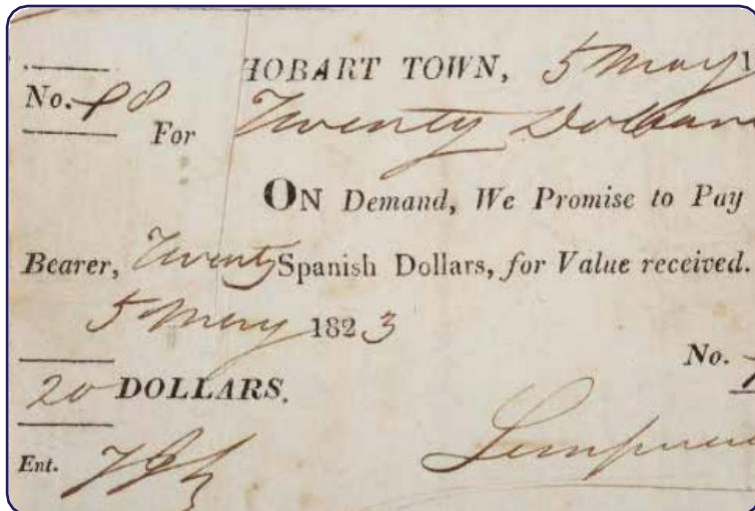 HOBART TOWN, 5 May 1
No. 98
For Twenty Dollars
ON Demand, We Promise to Pay
Bearer, Twenty Spanish Dollars, for Value received.
5 May 1823
No.
20 DOLLARS.
Ent.